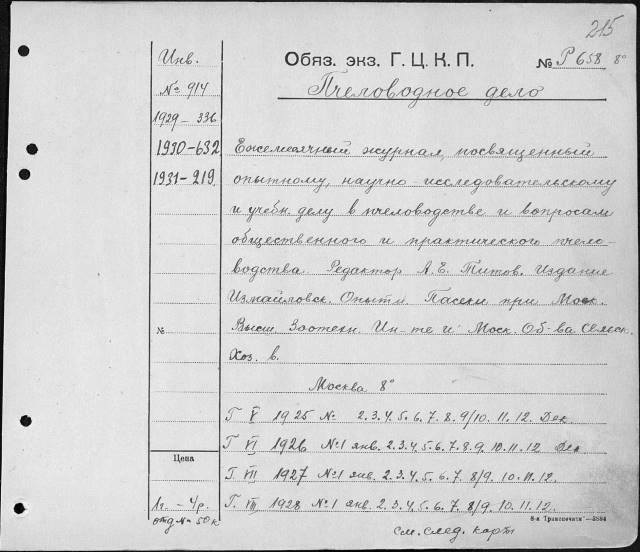 215
Инв.
№ 914
1929 - 336
1930-632
1931-219
№
Цена
1г. - 4р.
отд № 50к
Обяз. экз. Г. Ц. К. П. № Р 658 8°
Пчеловодное дело
Ежемесячный журнал, посвященный
опытному, научно-исследовательскому
и учебн. делу в пчеловодстве и вопросам
общественного и практического пчело-
водства. Редактор А. Е. Титов. Издание
Измайловск. Опытн. Пасеки при Моск.
Высш. Зоотехн. Ин-те и Моск. Об-ва Сельск.
Хоз. в.
Москва 8°
Г V 1925 № 2. 3. 4. 5. 6. 7. 8. 9/10. 11. 12. Дек
Г VI 1926 №1 янв. 2. 3. 4. 5. 6. 7. 8. 9. 10. 11. 12 Дек
Г. VII 1927 №1 янв. 2. 3. 4. 5. 6. 7. 8/9. 10. 11. 12.
Г. VIII 1928 №1 янв. 2. 3. 4. 5. 6. 7. 8/9. 10. 11. 12.
8-я „Транспечати“—3884
см. след. карт